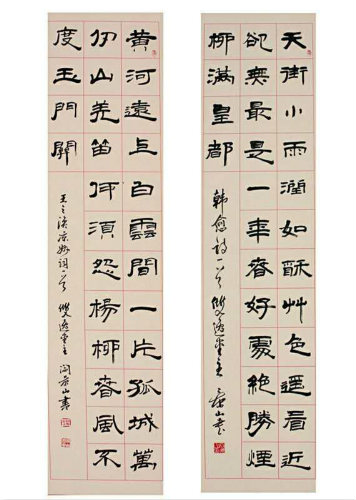 天街小雨潤如酥艸色遥看近
卻無最是一年春好處絶勝煙
柳滿皇都
韩愈诗一首
黄河遠上白雲間一片孤城萬
仞山羌笛何須怨楊柳春風不
度玉門關
王之涣凉州词一首